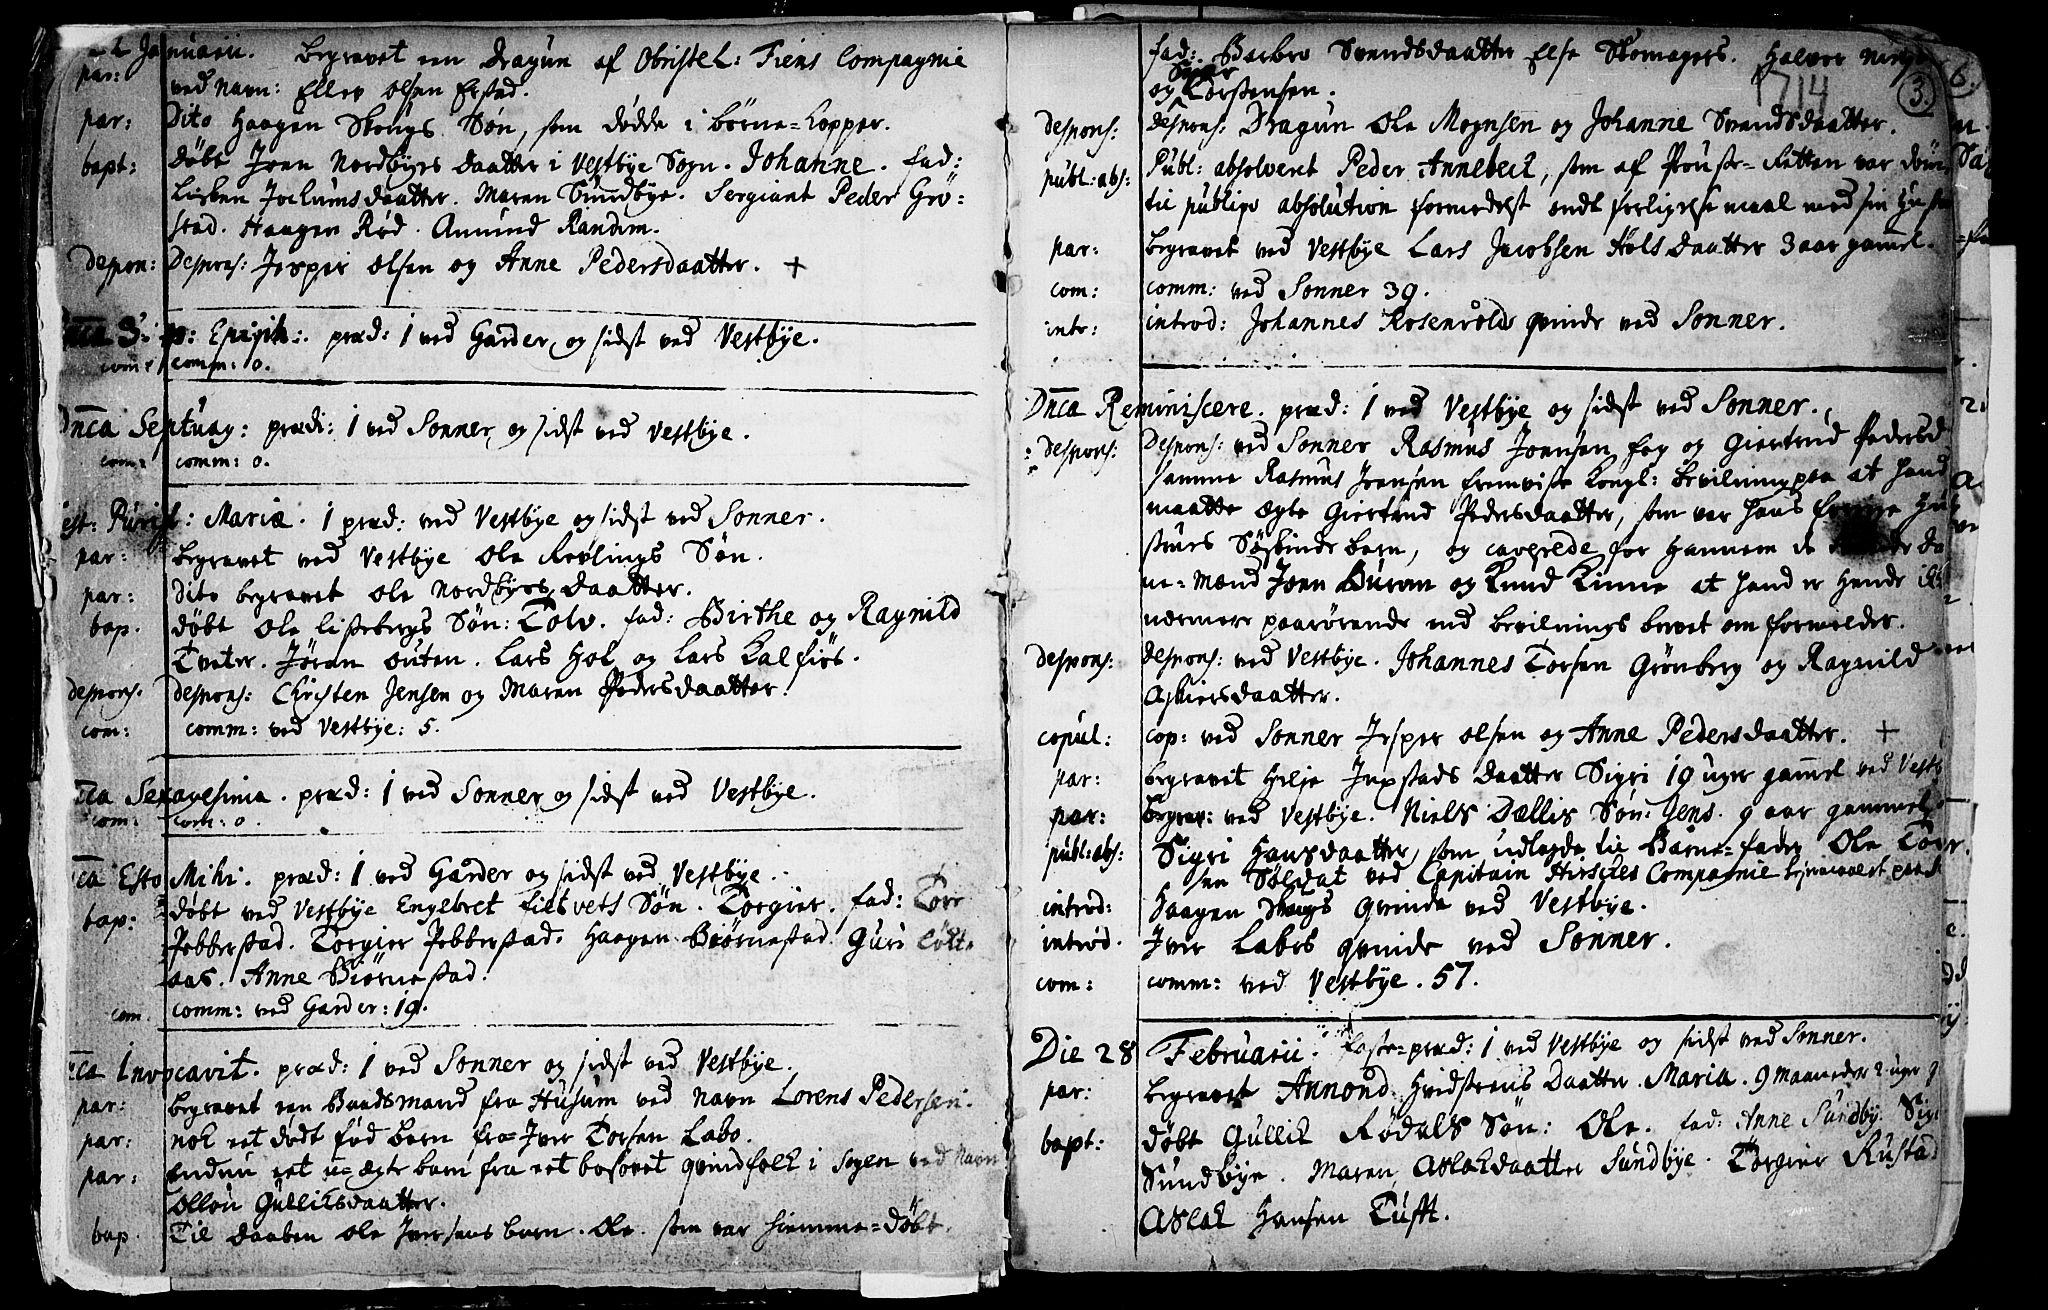 Januarii. begravet en Dragun af Obristel: Fiens Compagnie
par: ved Navn: Ellev Olsen Erstad.
par: Dito Haagen Skougs Søn, som dødde i børne-kopper.
bapt: døbt Joen Nordbyes Daatter i Vestbye Sogn. Johanne. fad:
Lisken Jochumsdaatter. Maren Sundbye. Sergiant Peder Grö-
stad. Haagen Rød. Amund Randem.
depon: Despons: Jesper Olsen og Anne Pedersdaatter. +
3. p: Epiph: præd: 1 ved Garder og sidst ved Vestbÿe.
com: comm: 0.
Dnca Septuag: prædi: 1 ved Sonner og sidst ved Vestbye.
com: comm: 0.
est: Purif: Mariæ. 1 præd: ved Vestbye og sidst ved Sonner.
par: begravet ved Vestbye Ole Revlings Søn.
par: dito begravet Ole Nordbyes Daatter.
bap. døbt Ole Listebergs Søn: Tolv. fad: Birthe og Ragnild
Tveter. Jöran Outen. Lars Hol og Lars Kalfiös.
despons. despons: Christen Jensen og Maren Pedersdaatter.
com: comm: ved Vestbye: 5.
ca Sexagesima. præd: 1 ved Sonner og sidst ved Vestbye.
com: com: 0.
ca Esto Mihi. præd: 1 ved Garder og sidst ved Vestbye.
bap: døbt ved Vestbye Engebret Lietvets Søn. Torgier. fad: Tore
Pebberstad. Torgier Pebberstad. Haagen Biörnestad. Guri Tölt-
aas. Anne Biörnestad.
com. comm: ved Garder: 19.
ca Invocavit. præd: 1 ved Sonner og sidst ved Vestbye.
par: begravet een Baadsmand fra Husum ved Navn Lorens Pedersen.
par: nok et dødt fød barn fra Iver Torsen Labo.
par: endnu et u-ægte barn fra et besovet qvindfolk i Sogen ved Navn
Ollou Gullichsdaatter.
bap. Til daaben Ole Iversens barn. Ole. som var hiemme-døbt.
fad: Barbro Svendsdaatter Else Skomagers. Halvor
1714
3.
og Torstensen.
despons: despons: Dragun Ole Mognsen og Johanne Svendsdaatter.
publ: abs: Publ: absolveret Peder Annebech, som af Prouste-Retten var döm
til publiqve absolution formedelst ondt forligelsemaal med sin Hustr
par: begravet ved Vestbÿe Lars Jacobsen Høls Daatter 3 aar gamel.
com: comm: ved Sonner 39.
intr: introd: Johannes Rosenvolds qvinde ved Sonner.
Dnca Reminiscere. præd: 1 ved Vestbye og sidst ved Sonner.
despons: despons: ved Sonner Rasmus Joensen Foy og Giertrud Pedersd
samme Rasmus Joensen fremviste Kongl: bevilning paa at hand
maatte ægte Giertrud Pedersdaatter, som var hans forrige Hu
strues Söskinde barn, og caverede for hannem de
ne-Mænd Joen Burum og Knud Kinne at hand er hende ikk
nermere paarörende end bevilnings brevet om formelder.
despons: despons: ved Vestbye. Johannes Torsen Grönberg og Ragnild
Askiersdaatter.
copul: cop: ved Sonner Jesper Olsen og Anne Pedersdaatter. +
par: begravet Helje Jupstads Daatter Sigri 19 uger gamel ved Vestb
par: begrav: ved Vestbye. Niels Dællis Søn: Jens. 9 aar gammel
publ: abs: Sigri Hansdaatter, som udlagde til Barne-fader Ole Tor
en Soldat ved Capitain Hirsches Compagnie
introd: Haagen Skougs qvinde ved Vestbye.
introd. Iver Labos qvinde ved Sonner.
com: comm: ved Vestbye. 57.
Die 28 Februarii. faste-præd: 1 ved Vestbye og sidst ved Sonner.
par: begravet Annond Hvidstens Daatter. Maria. 9 maaneder 2 uger
bapt: døbt Gullik Rødals Søn: Ole. fad: Anne Sundby. Sigr
Sundbye. Maren Aslakdaatter Sundbye. Torgier Rusta
Aslak Hansen Tufft.